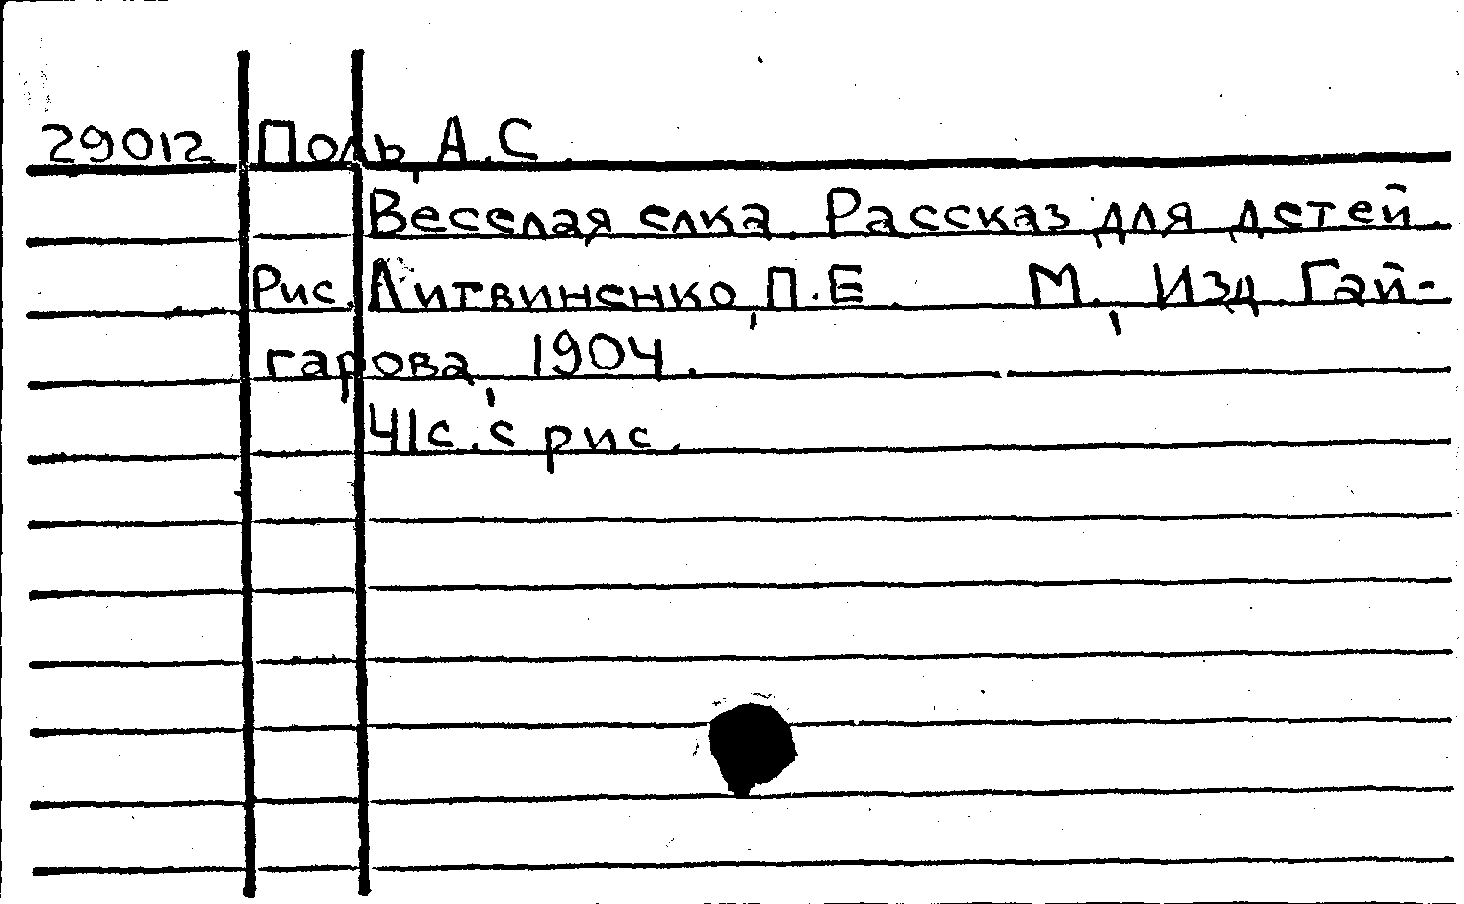 29012 Поль, А.С.
Веселая елка. Рассказ для детей.
Рис. Литвиненко, П.Е. М., Изд. Гай-
гарова, 1904.
41с. с рис.